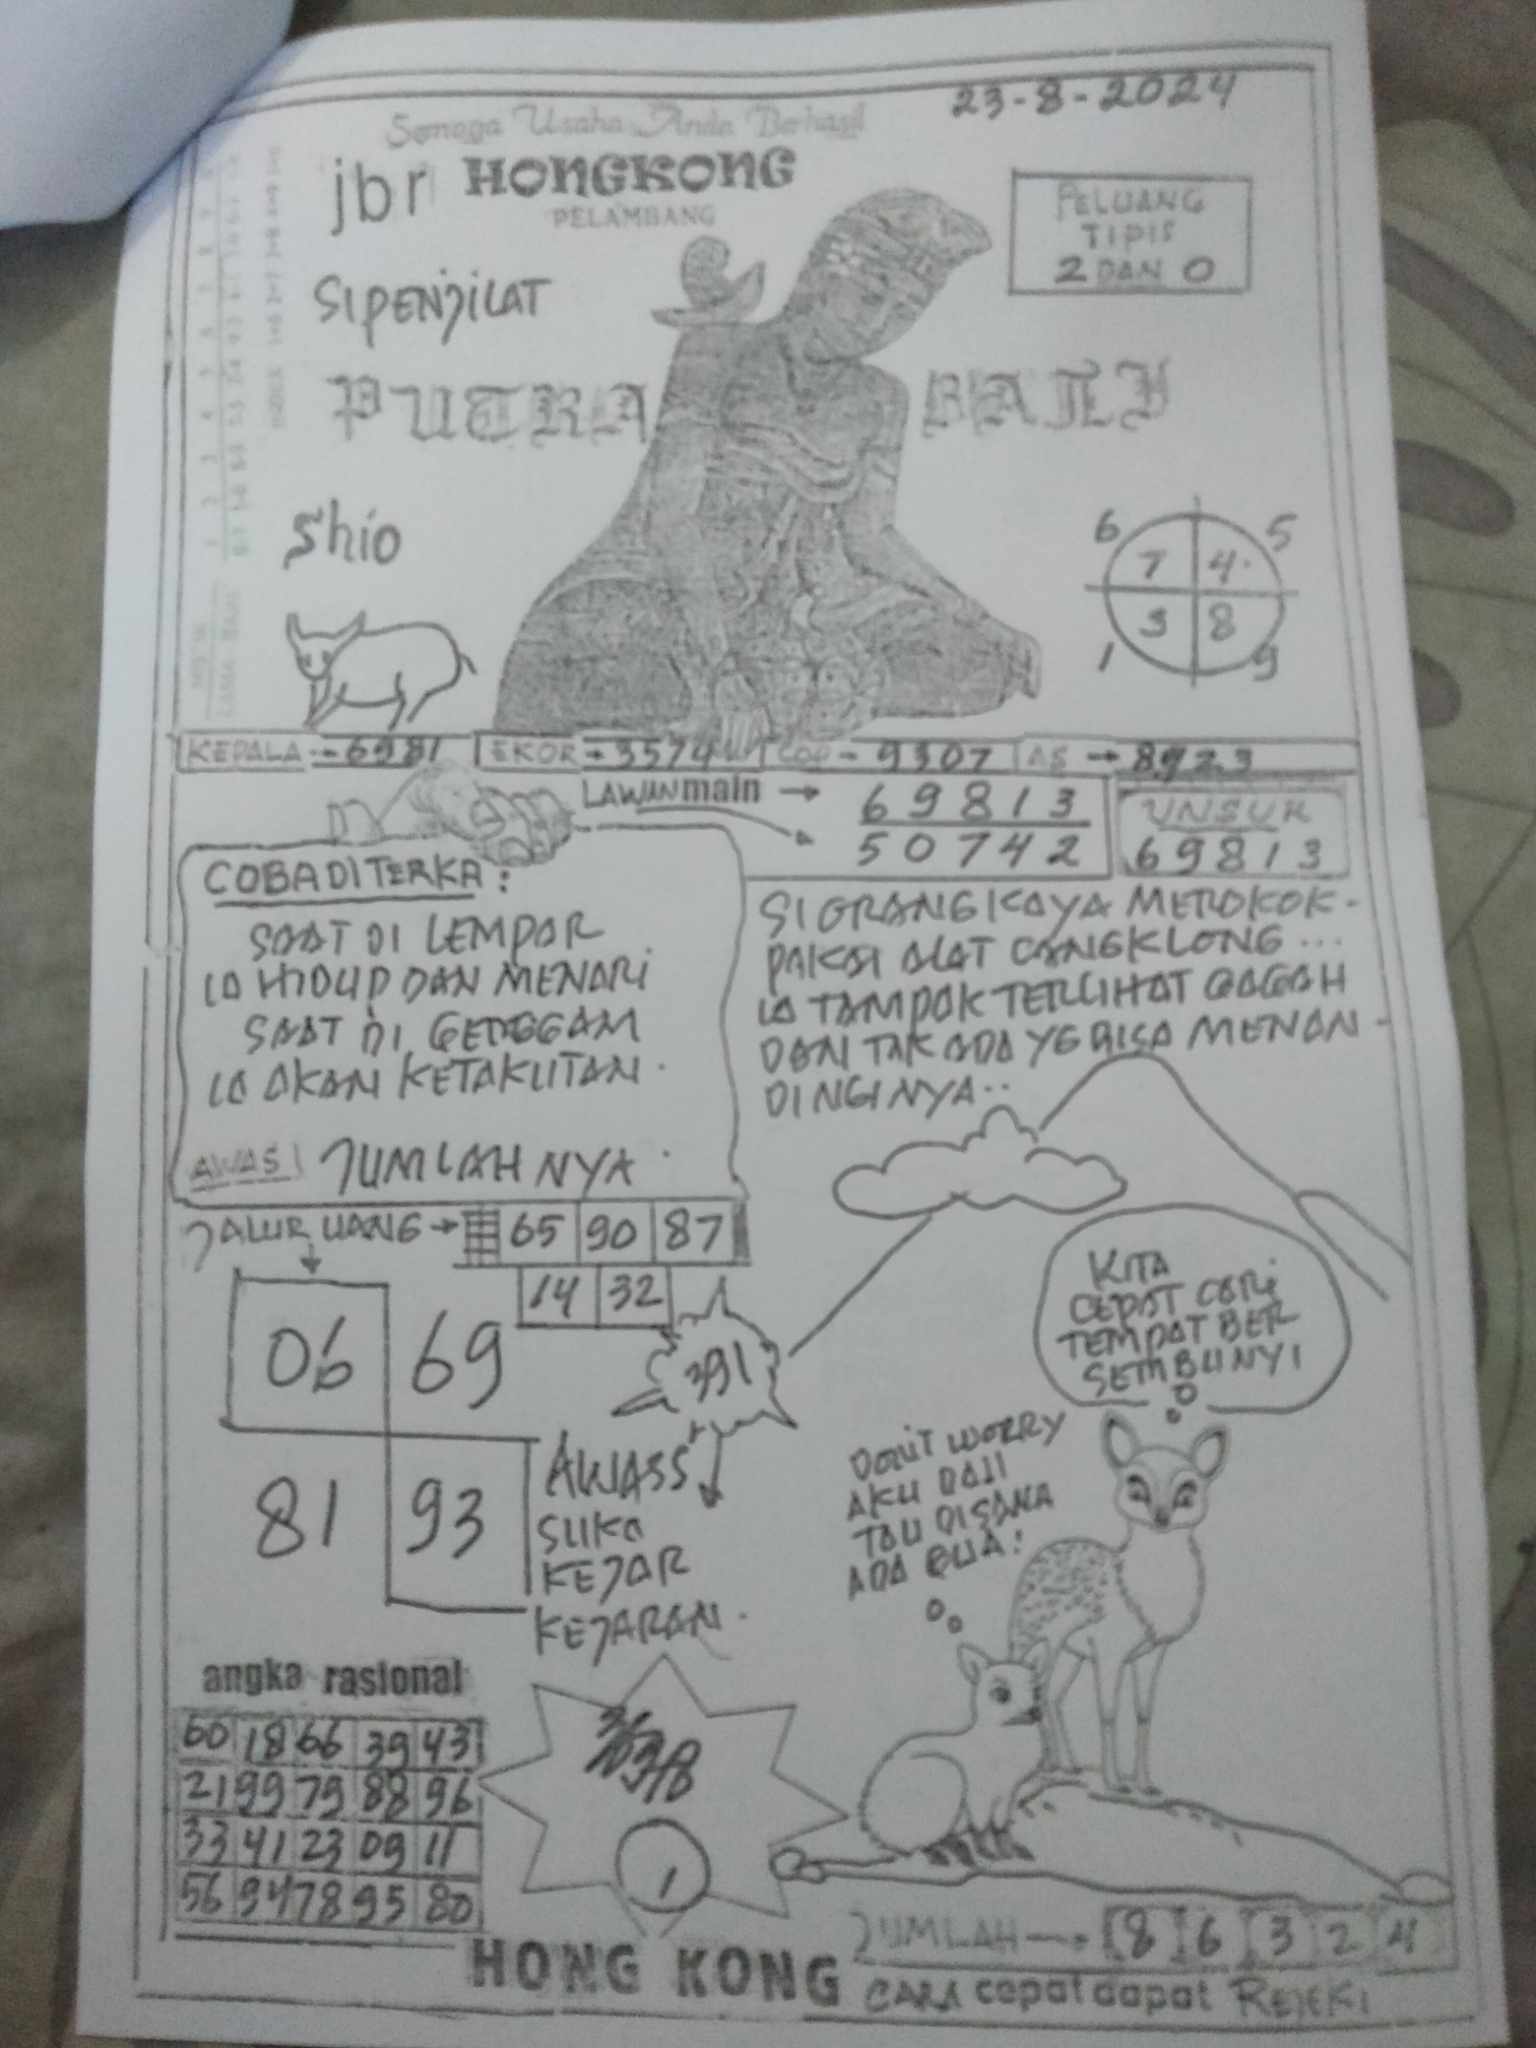 23-8-2024
Semoga Usaha Anda Berhasil
jbr HONGKONG
PELAMBANG
PELUANG
TIPIS
2 DAN 0
SIPENJILAT
PUTRA BALI
Shio
6 5
7 4
3 8
1 9
KEPALA → 6981
EKOR → 3574
COP → 9307
AS → 8923
LAWAN main → 69813
50742
UNSUR
69813
COBA DI TERKA :
SAAT DI LEMPAR
IA HIDUP DAN MENARI
SAAT DI GENGGAM
IA AKAN KETAKUTAN.
AWAS! JUMLAHNYA.
SI ORANG KAYA MEROKOK-
PAKAI ALAT CANGKLONG...
IA TAMPAK TERLIHAT GAGAH
DAN TAK ADA YG BISA MENAN-
DINGINYA..
JALUR UANG → 65 90 87
14 32
06 69
81 93
391
AWASS
SUKA
KEJAR
KEJARAN.
KITA
CEPAT CARI
TEMPAT BER
SEMBUNYI
DON'T WORRY
AKU DAH
TAU DISANA
ADA GUA!
angka rasional
60 18 66 39 43
21 99 79 88 96
33 41 23 09 11
56 94 78 95 80
1
JUMLAH → 8 6 3 2 4
HONG KONG
CARA cepat dapat REJEKI